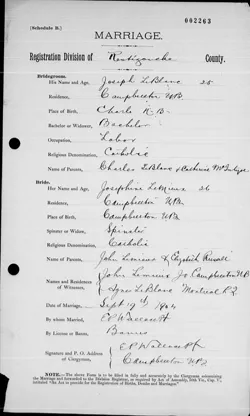 002263
[Schedule B.]
MARRIAGE.
Registration Division of Restigouche County.
Bridegroom.
His Name and Age, Joseph LeBlanc 25
Residence, Campbellton N.B.
Place of Birth, Charlo N.B.
Bachelor or Widower, Bachelor
Occupation, Labor
Religious Denomination, Catholic
Names of Parents, Charles LeBlanc & Catherine
Bride.
Her Name and Age, Josephine Lemieux 26
Residence, Campbellton N.B.
Place of Birth, Campbellton N.B.
Spinster or Widow, Spinster
Religious Denomination, Catholic
Names of Parents, John Lemieux & Elizabeth Russell
Names and Residences of Witnesses, John Lemieux Jr Campbellton N.B.
Agnes LeBlanc Montreal P.Q.
Date of Marriage, Sept 19th 1904
By whom Married, E P Wallace
By License or Banns, Banns
Signature and P. O. Address of Clergyman, E P Wallace
Campbellton N.B.
NOTE.—The above Form is to be filled in fully and accurately by the Clergyman solemnizing the Marriage and forwarded to the Division Registrar, as required by Act of Assembly, 50th Vic., Cap. 5, intituled "An Act to provide for the Registration of Births, Deaths and Marriages."